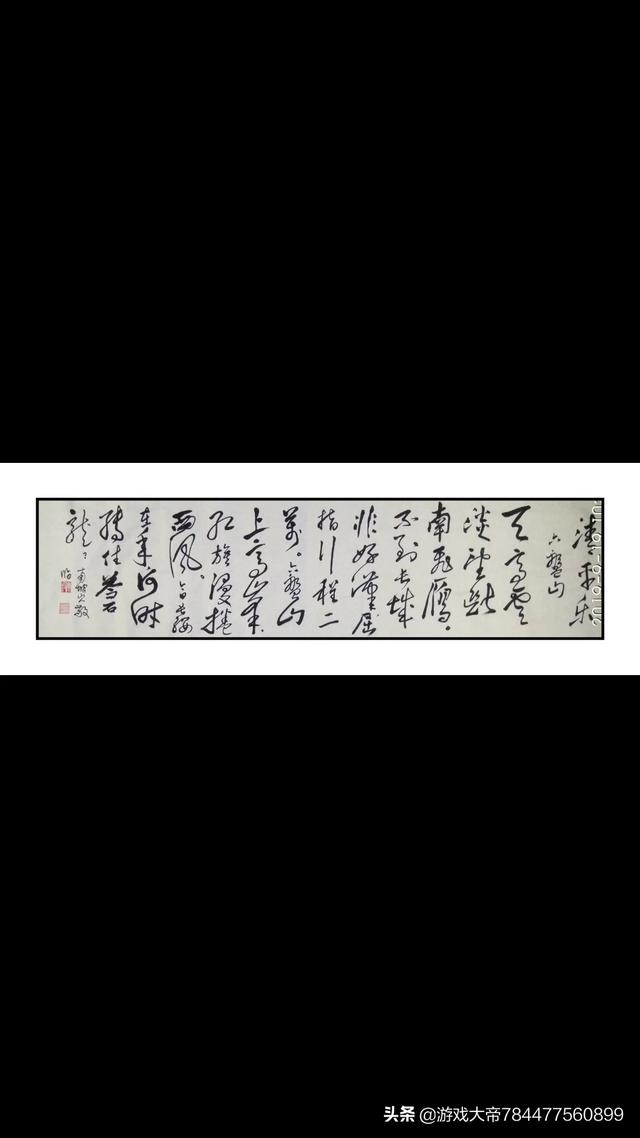 清平乐
六盤山
天高雲
淡望断
南飛雁。
不到长城
非好漢屈
指行程二
萬。六盤山
上高峯.
红旗漫捲
西风、今日长缨
在手何时
缚住蒼
龙
敬
临
头条 @游戏大帝784477560899